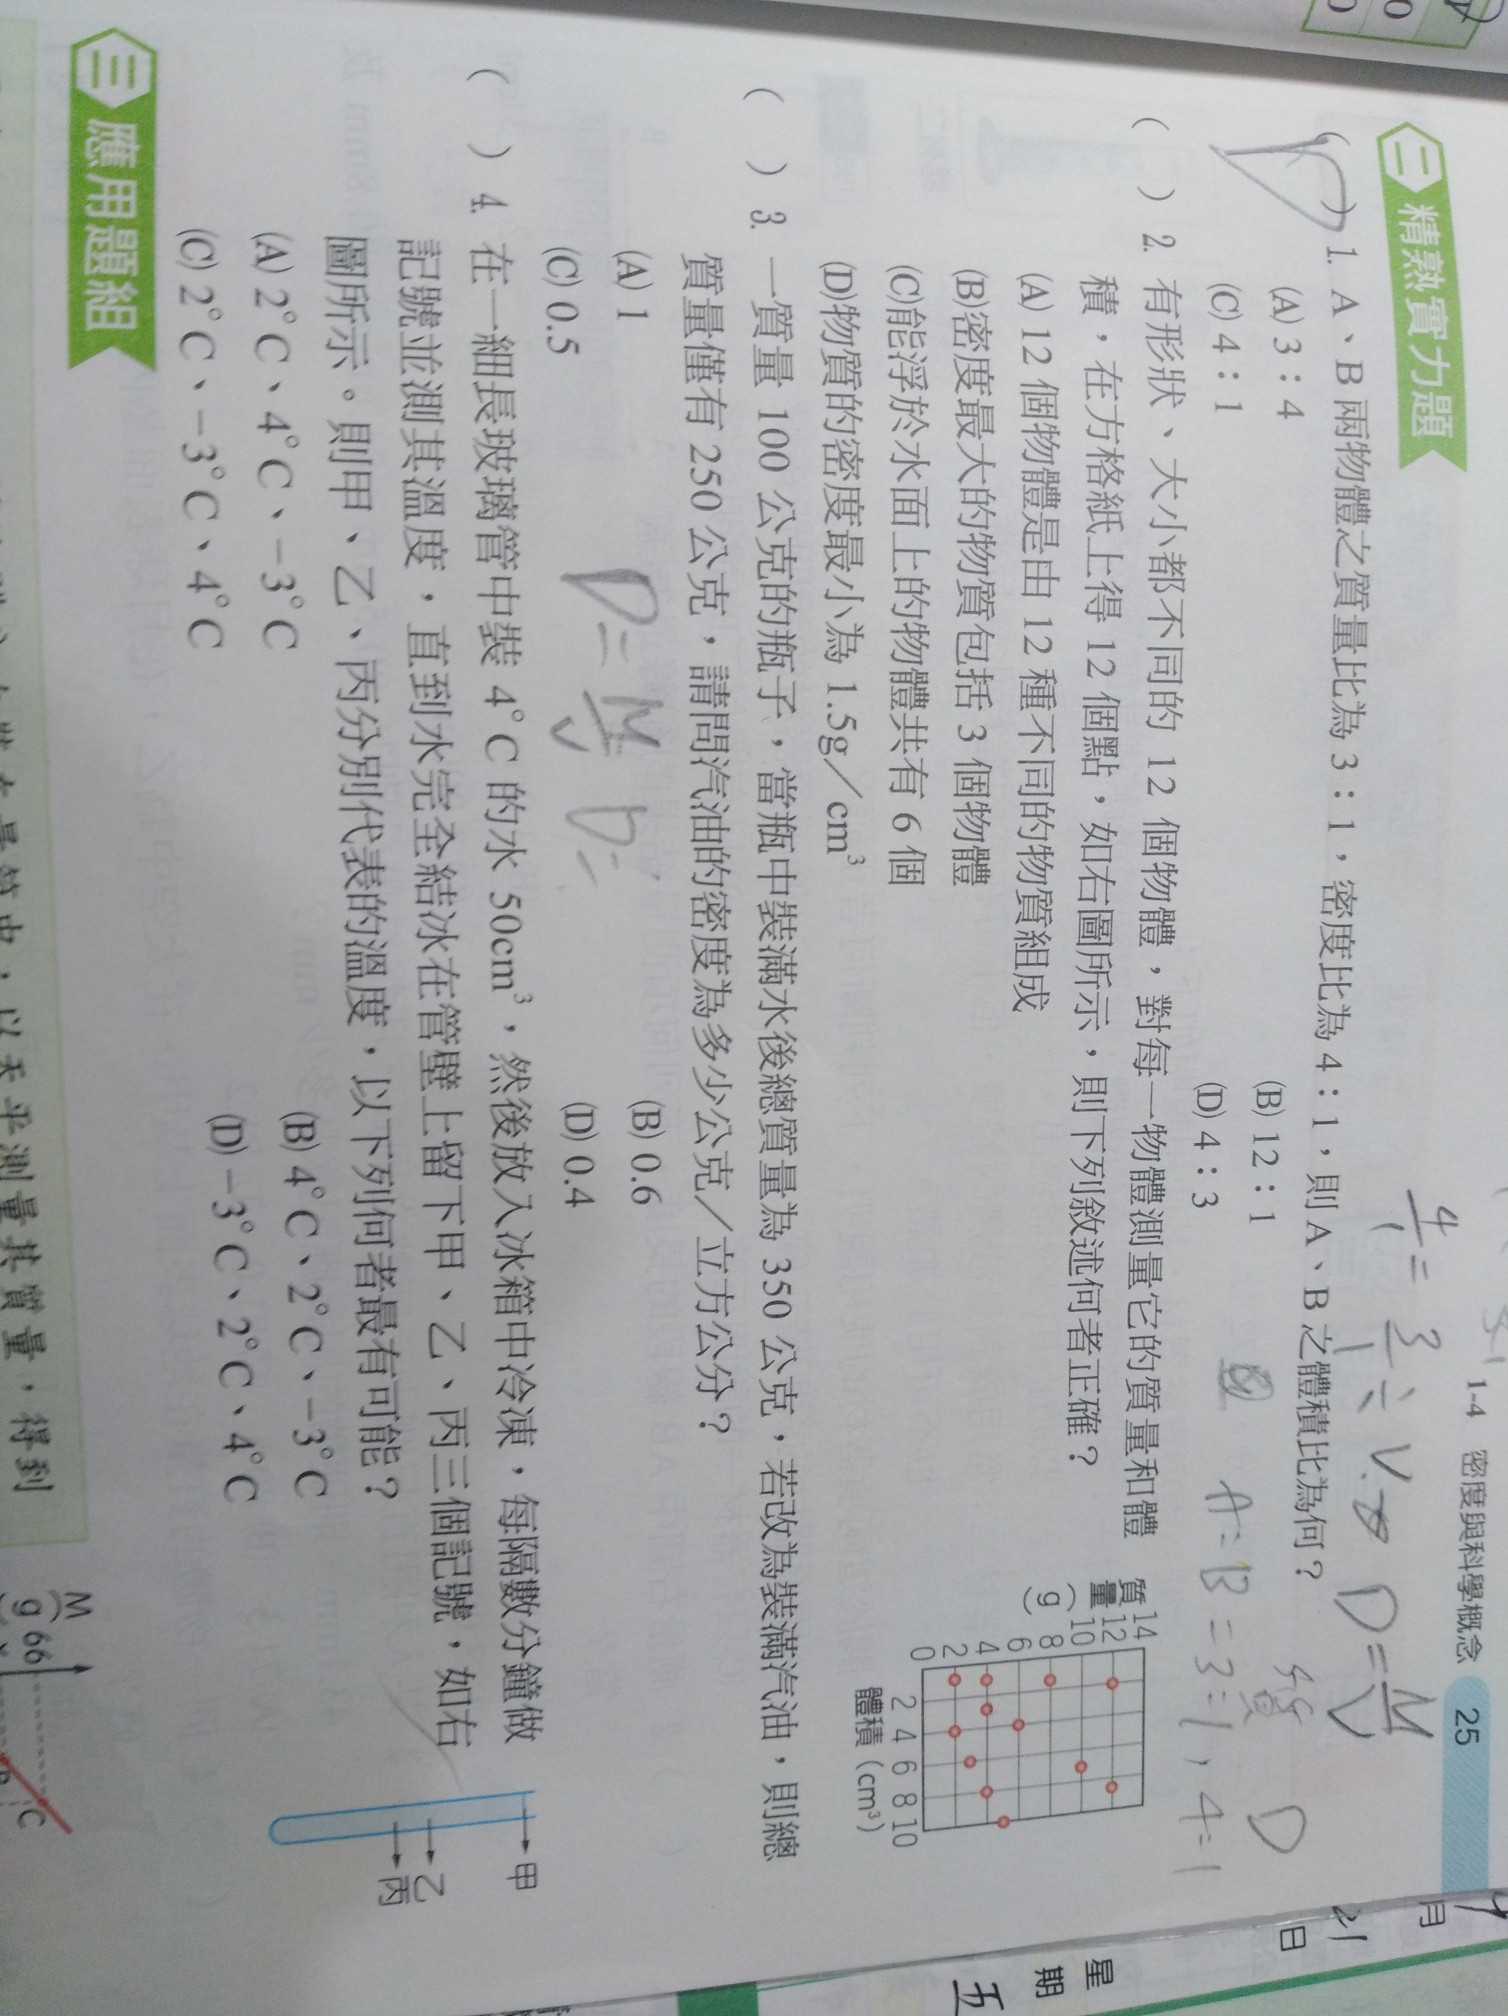 1-4 密度與科學概念 25
二 精熟實力題
( ) 1. A、B 兩物體之質量比為 3:1,密度比為 4:1,則 A、B 之體積比為何?
(A) 3:4 (B) 12:1
(C) 4:1 (D) 4:3
( ) 2. 有形狀、大小都不同的 12 個物體,對每一物體測量它的質量和體
積,在方格紙上得 12 個點,如右圖所示,則下列敘述何者正確?
(A) 12 個物體是由 12 種不同的物質組成
(B)密度最大的物質包括 3 個物體
(C)能浮於水面上的物體共有 6 個
(D)物質的密度最小為 1.5g/cm³
質量(g)
14
12
10
8
6
4
2
0
2 4 6 8 10
體積(cm³)
( ) 3. 一質量 100 公克的瓶子,當瓶中裝滿水後總質量為 350 公克,若改為裝滿汽油,則總
質量僅有 250 公克,請問汽油的密度為多少公克/立方公分?
(A) 1 (B) 0.6
(C) 0.5 (D) 0.4
D=M/V D=
( ) 4. 在一細長玻璃管中裝 4°C 的水 50cm³,然後放入冰箱中冷凍,每隔數分鐘做
記號並測其溫度,直到水完全結冰在管壁上留下甲、乙、丙三個記號,如右
圖所示。則甲、乙、丙分別代表的溫度,以下列何者最有可能?
(A) 2°C、4°C、-3°C (B) 4°C、2°C、-3°C
(C) 2°C、-3°C、4°C (D) -3°C、2°C、4°C
甲
乙
丙
三 應用題組
量筒中,以天平測量其質量,得到
M
(g)
66
C
D=M/V
A:B=3:1,4:1
質 D
月
21
日
星
期
五